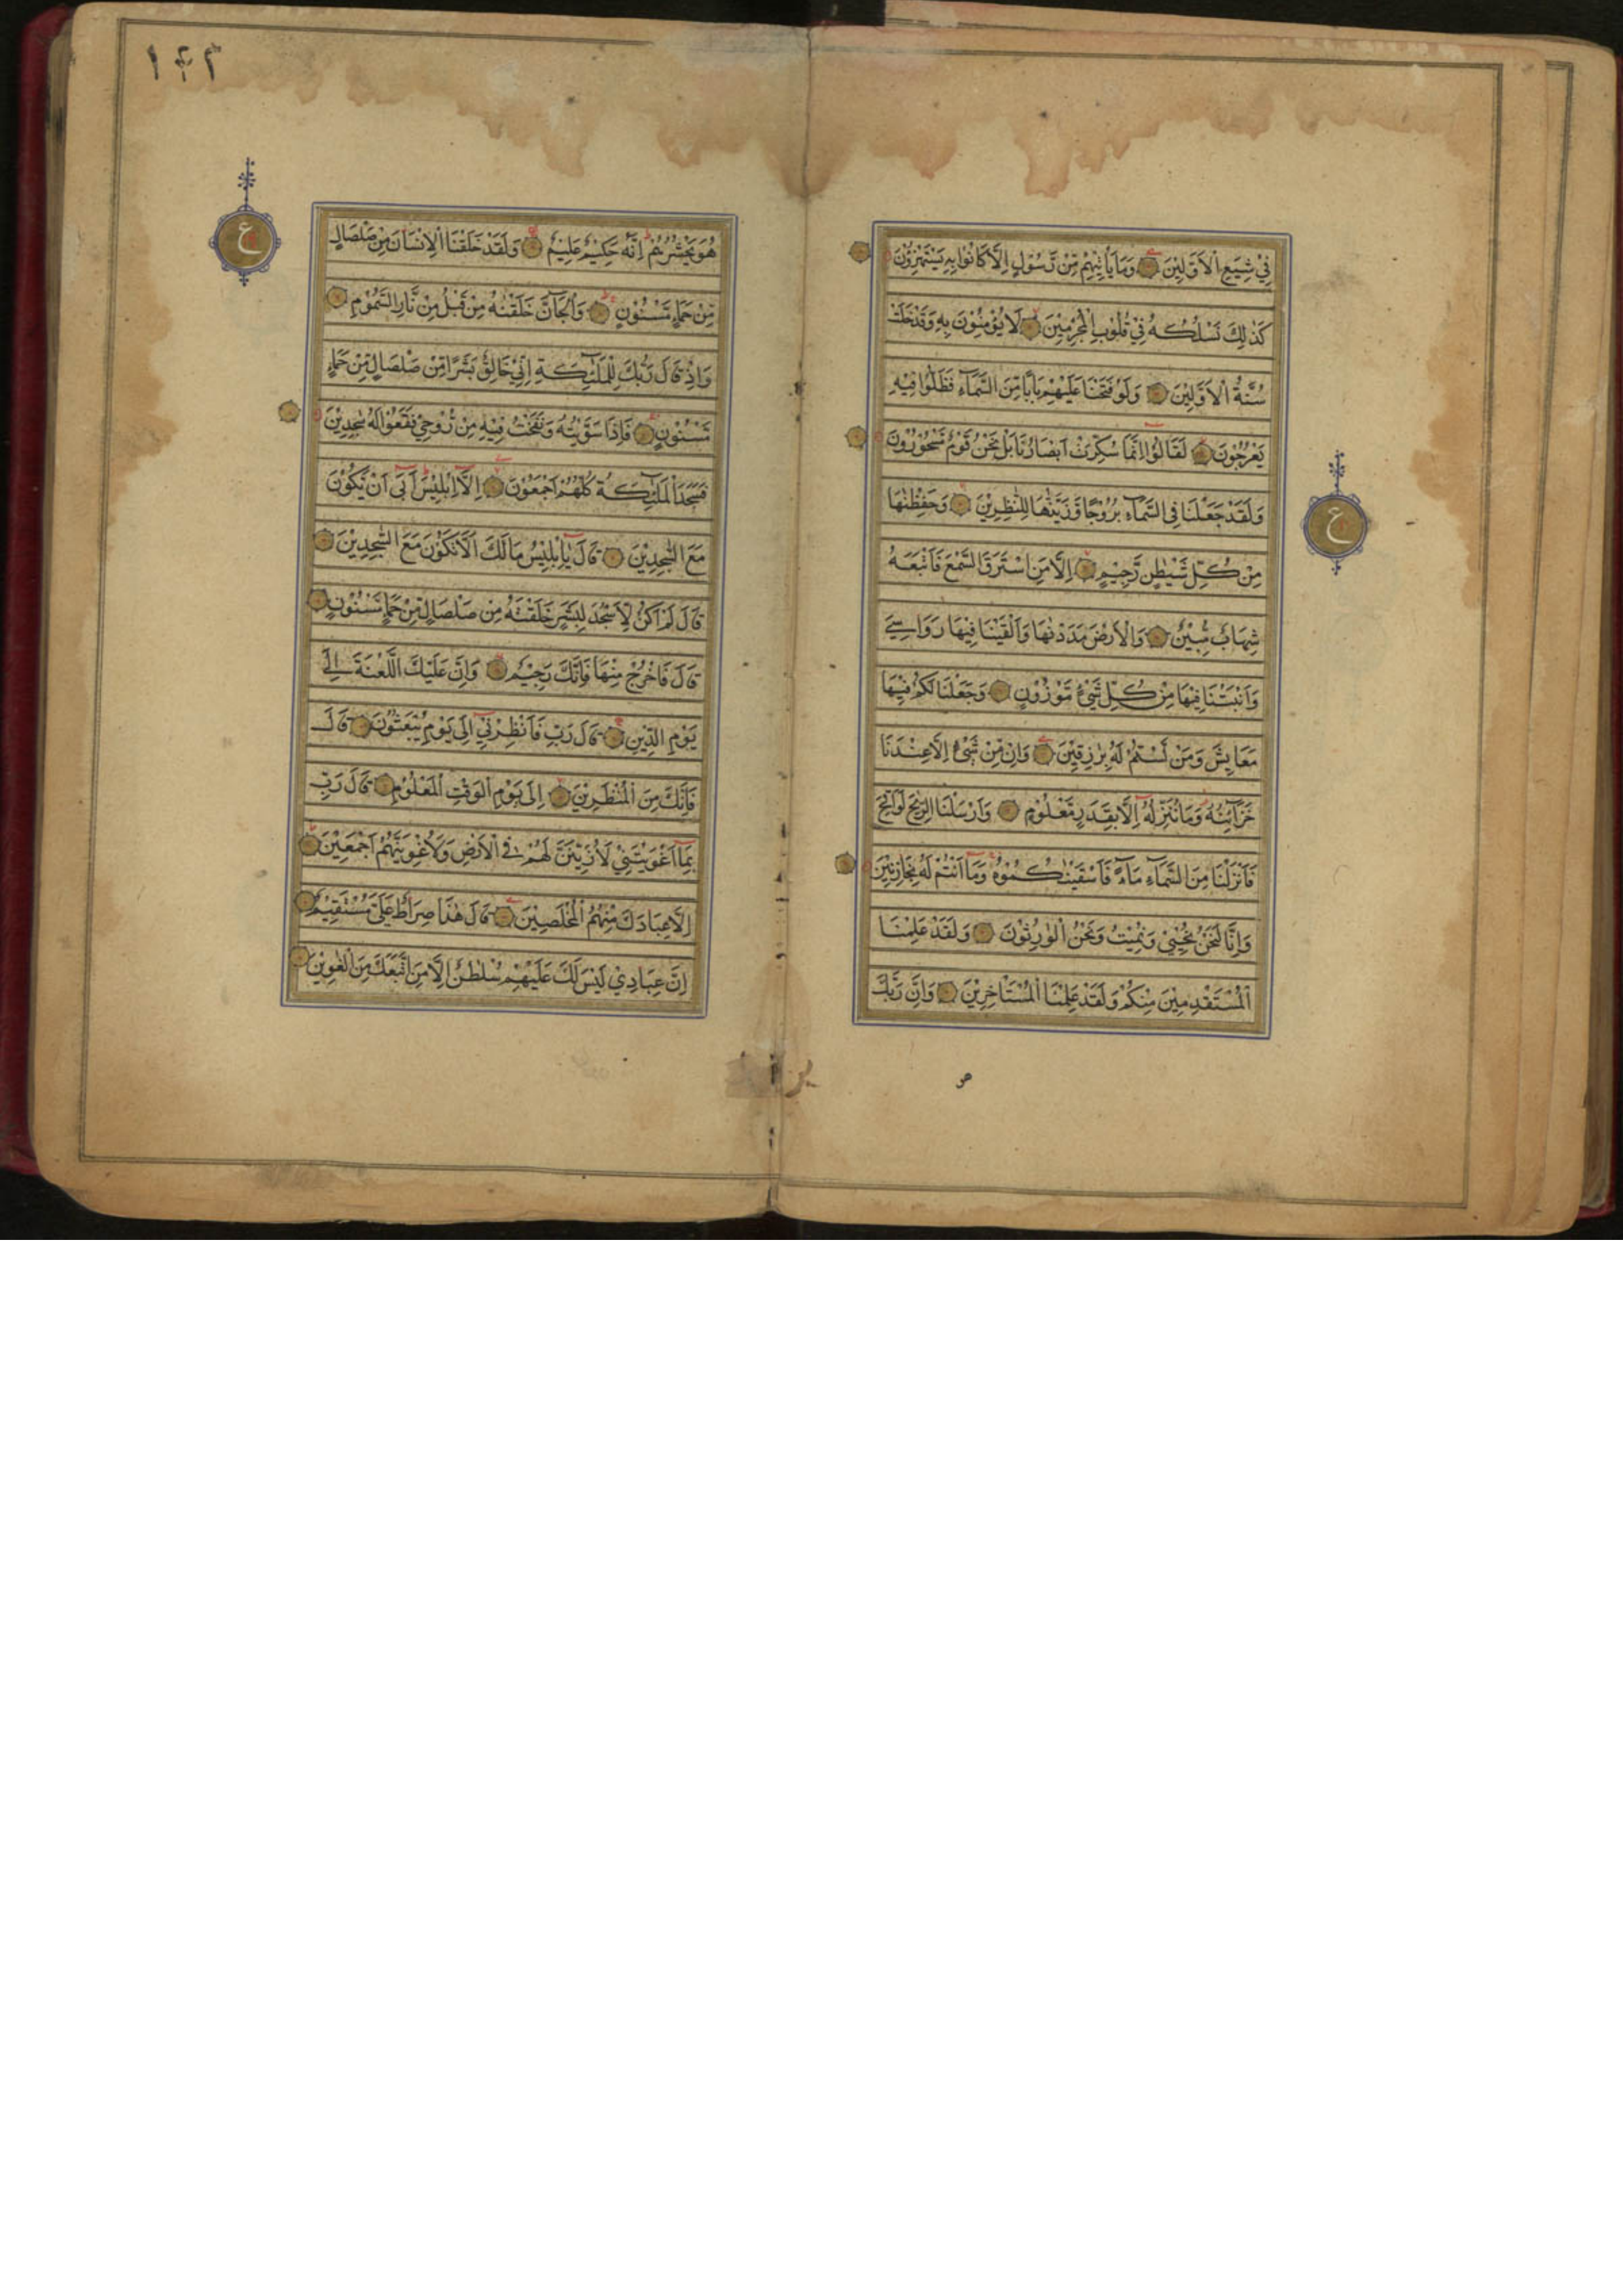 فِيْ شِيَعِ الْاَوَّلِيْنَ وَمَا يَأْتِيْهِمْ مِّنْ رَّسُوْلٍ اِلَّا كَانُوْا بِهٖ يَسْتَهْزِؤُنَ
كَذٰلِكَ نَسْلُكُهٗ فِيْ قُلُوْبِ الْمُجْرِمِيْنَ لَا يُؤْمِنُوْنَ بِهٖ وَقَدْ خَلَتْ
سُنَّةُ الْاَوَّلِيْنَ وَلَوْ فَتَحْنَا عَلَيْهِمْ بَابًا مِّنَ السَّمَآءِ فَظَلُّوْا فِيْهِ
يَعْرُجُوْنَ لَقَالُوْا اِنَّمَا سُكِّرَتْ اَبْصَارُنَا بَلْ نَحْنُ قَوْمٌ مَّسْحُوْرُوْنَ
وَلَقَدْ جَعَلْنَا فِى السَّمَآءِ بُرُوْجًا وَّزَيَّنّٰهَا لِلنّٰظِرِيْنَ وَحَفِظْنٰهَا
مِنْ كُلِّ شَيْطٰنٍ رَّجِيْمٍ اِلَّا مَنِ اسْتَرَقَ السَّمْعَ فَاَتْبَعَهٗ
شِهَابٌ مُّبِيْنٌ وَالْاَرْضَ مَدَدْنٰهَا وَاَلْقَيْنَا فِيْهَا رَوَاسِيَ
وَاَنْبَتْنَا فِيْهَا مِنْ كُلِّ شَيْءٍ مَّوْزُوْنٍ وَجَعَلْنَا لَكُمْ فِيْهَا
مَعَايِشَ وَمَنْ لَّسْتُمْ لَهٗ بِرٰزِقِيْنَ وَاِنْ مِّنْ شَيْءٍ اِلَّا عِنْدَنَا
خَزَآئِنُهٗ وَمَا نُنَزِّلُهٗ اِلَّا بِقَدَرٍ مَّعْلُوْمٍ وَاَرْسَلْنَا الرِّيٰحَ لَوَاقِحَ
فَاَنْزَلْنَا مِنَ السَّمَآءِ مَآءً فَاَسْقَيْنٰكُمُوْهُ وَمَا اَنْتُمْ لَهٗ بِخَازِنِيْنَ
وَاِنَّا لَنَحْنُ نُحْيِيْ وَنُمِيْتُ وَنَحْنُ الْوٰرِثُوْنَ وَلَقَدْ عَلِمْنَا
الْمُسْتَقْدِمِيْنَ مِنْكُمْ وَلَقَدْ عَلِمْنَا الْمُسْتَأْخِرِيْنَ وَاِنَّ رَبَّكَ
ع
هُوَ يَحْشُرُهُمْ اِنَّهٗ حَكِيْمٌ عَلِيْمٌ وَلَقَدْ خَلَقْنَا الْاِنْسَانَ مِنْ صَلْصَالٍ
مِّنْ حَمَإٍ مَّسْنُوْنٍ وَالْجَآنَّ خَلَقْنٰهُ مِنْ قَبْلُ مِنْ نَّارِ السَّمُوْمِ
وَاِذْ قَالَ رَبُّكَ لِلْمَلٰٓئِكَةِ اِنِّيْ خَالِقٌ بَشَرًا مِّنْ صَلْصَالٍ مِّنْ حَمَإٍ
مَّسْنُوْنٍ فَاِذَا سَوَّيْتُهٗ وَنَفَخْتُ فِيْهِ مِنْ رُّوْحِيْ فَقَعُوْا لَهٗ سٰجِدِيْنَ
فَسَجَدَ الْمَلٰٓئِكَةُ كُلُّهُمْ اَجْمَعُوْنَ اِلَّا اِبْلِيْسَ اَبٰى اَنْ يَّكُوْنَ
مَعَ السّٰجِدِيْنَ قَالَ يٰاِبْلِيْسُ مَا لَكَ اَلَّا تَكُوْنَ مَعَ السّٰجِدِيْنَ
قَالَ لَمْ اَكُنْ لِّاَسْجُدَ لِبَشَرٍ خَلَقْتَهٗ مِنْ صَلْصَالٍ مِّنْ حَمَإٍ مَّسْنُوْنٍ
قَالَ فَاخْرُجْ مِنْهَا فَاِنَّكَ رَجِيْمٌ وَاِنَّ عَلَيْكَ اللَّعْنَةَ اِلٰى
يَوْمِ الدِّيْنِ قَالَ رَبِّ فَاَنْظِرْنِيْ اِلٰى يَوْمِ يُبْعَثُوْنَ قَالَ
فَاِنَّكَ مِنَ الْمُنْظَرِيْنَ اِلٰى يَوْمِ الْوَقْتِ الْمَعْلُوْمِ قَالَ رَبِّ
بِمَا اَغْوَيْتَنِيْ لَاُزَيِّنَنَّ لَهُمْ فِى الْاَرْضِ وَلَاُغْوِيَنَّهُمْ اَجْمَعِيْنَ
اِلَّا عِبَادَكَ مِنْهُمُ الْمُخْلَصِيْنَ قَالَ هٰذَا صِرَاطٌ عَلَيَّ مُسْتَقِيْمٌ
اِنَّ عِبَادِيْ لَيْسَ لَكَ عَلَيْهِمْ سُلْطٰنٌ اِلَّا مَنِ اتَّبَعَكَ مِنَ الْغٰوِيْنَ
ع